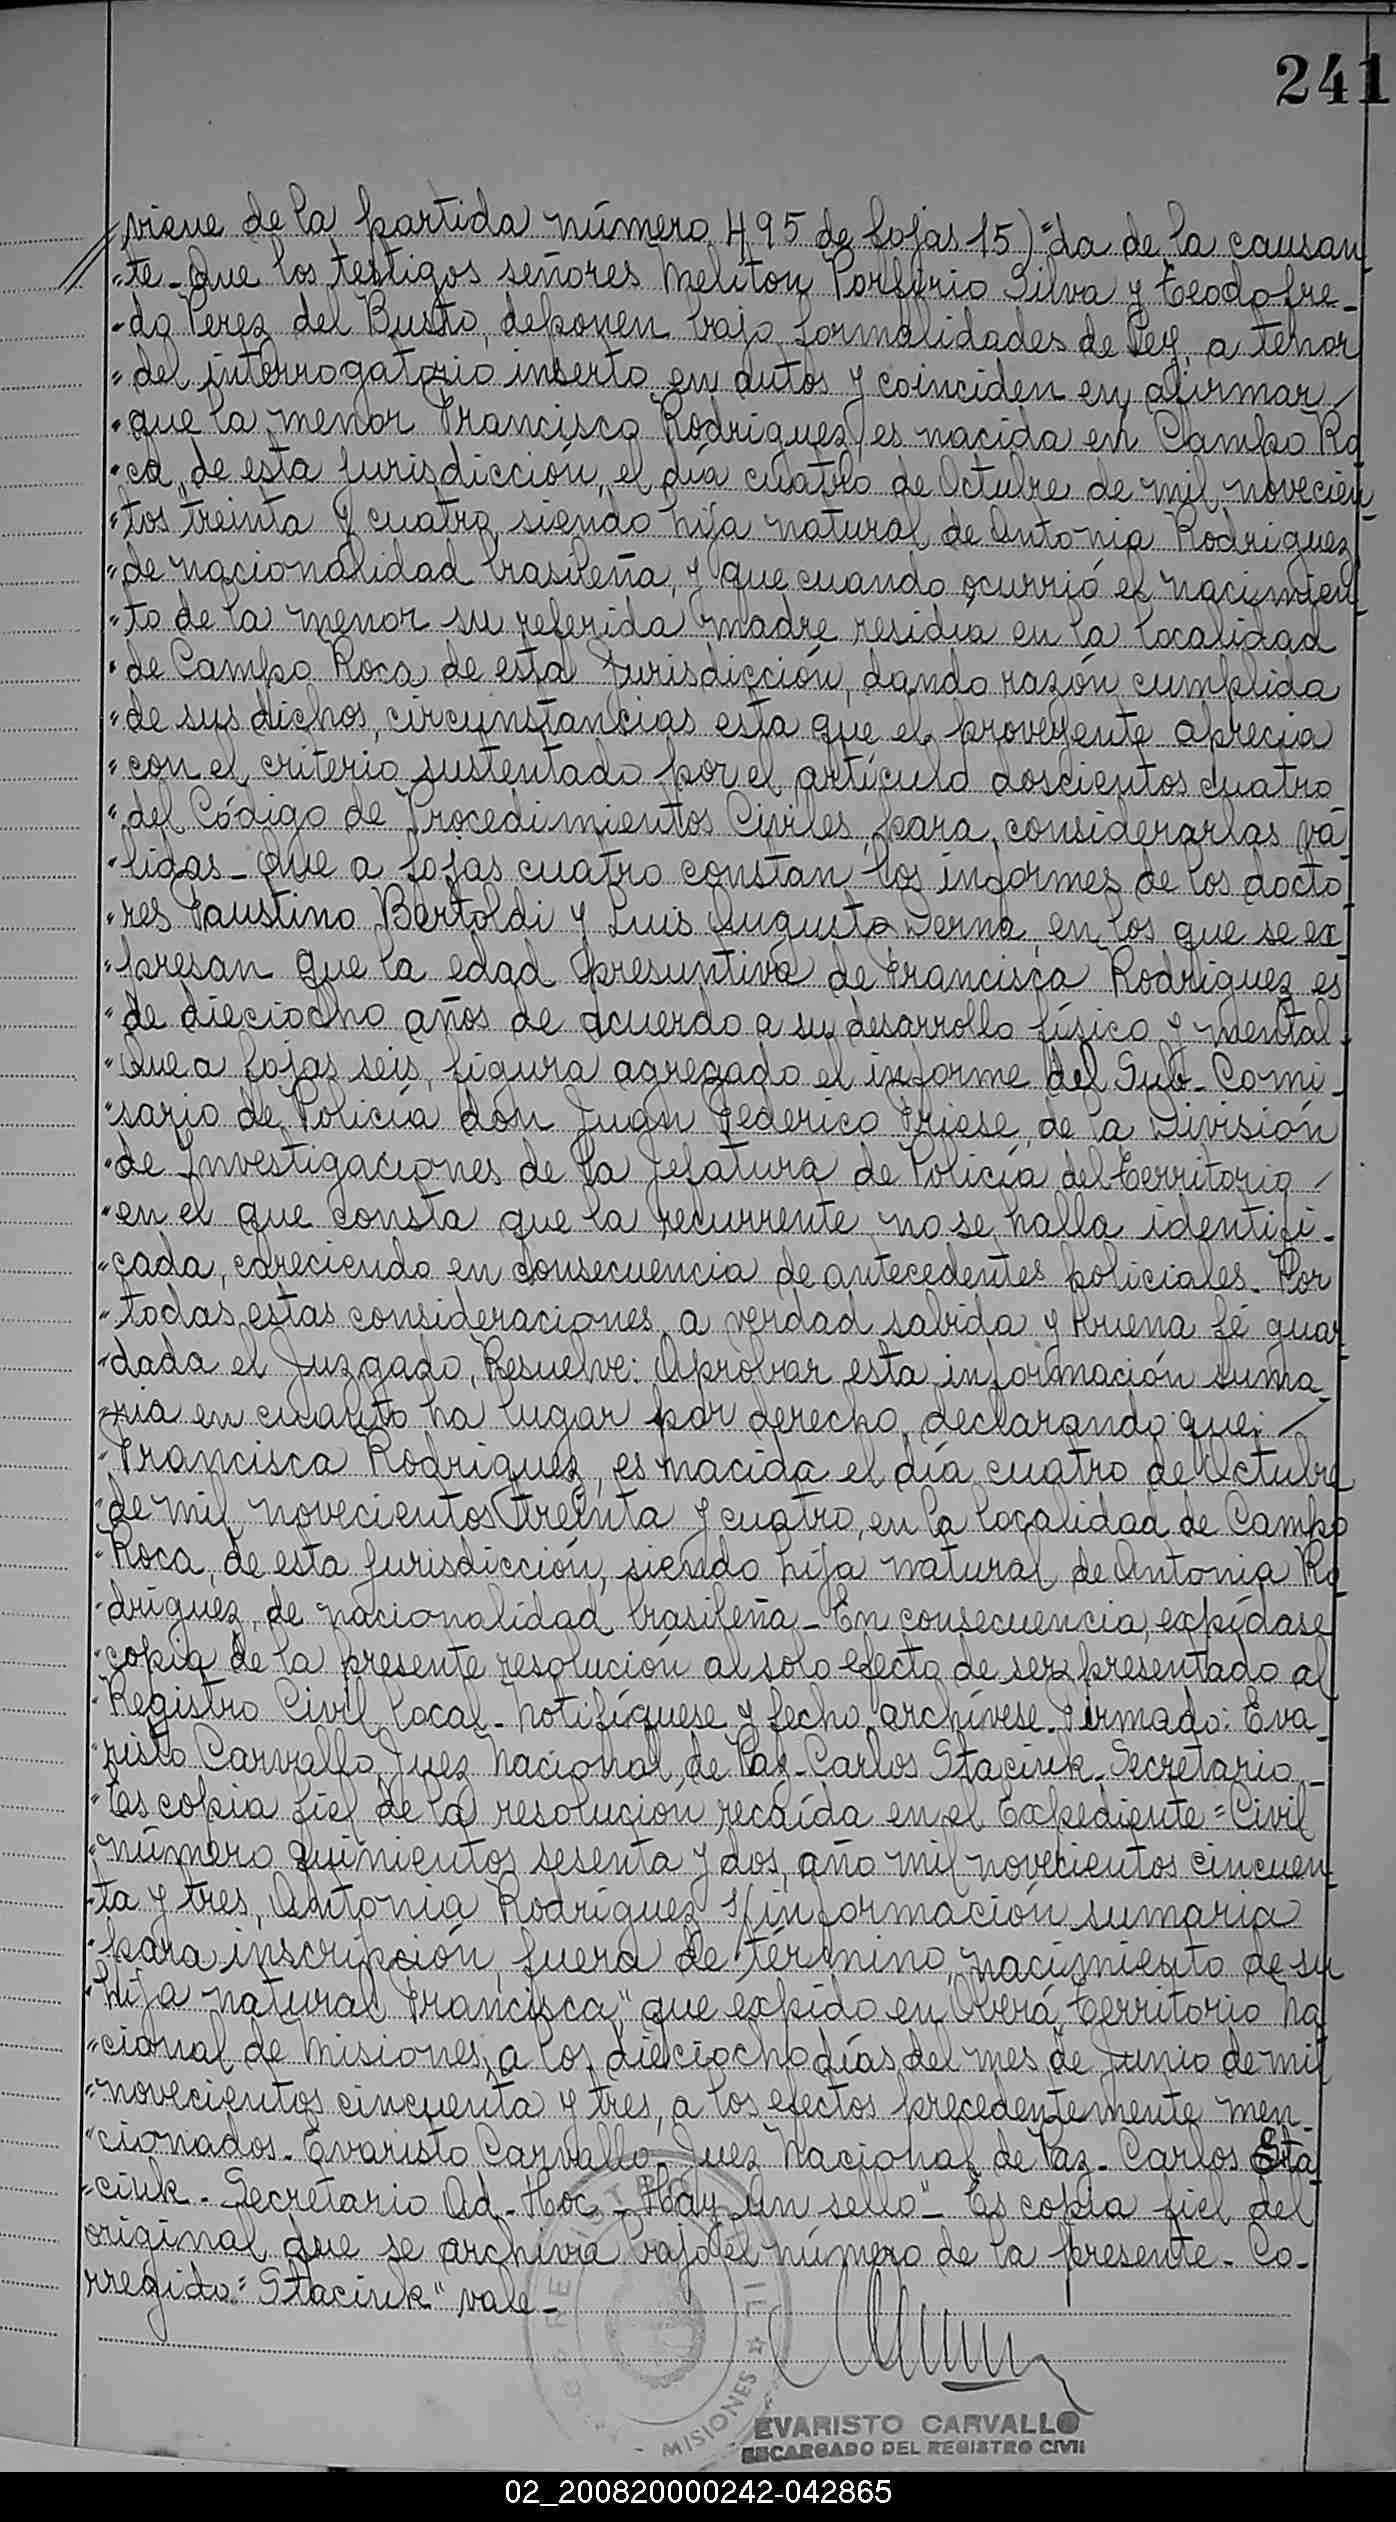 241
viene de la partida número 495 de fojas 15) "da de la causan
"te - Que los testigos señores Meliton Porfirio Silva y Teodofre-
"do Perez del Busto, deponen bajo formalidades de Ley, a tenor
"del interrogatorio inserto en autos y coinciden en afirmar
"que la menor Francisca Rodriguez, es nacida en Campo Ro
"ca, de esta jurisdicción, el día cuatro de Octubre de mil novecien
"tos treinta y cuatro, siendo hija natural de Antonia Rodriguez
"de nacionalidad brasileña, y que cuando ocurrió el nacimien
"to de la menor su referida madre, residía en la localidad
"de Campo Roca, de esta Jurisdicción, dando razón cumplida
"de sus dichos, circunstancias esta que el proveyente aprecia
"con el criterio sustentado por el artículo doscientos cuatro
"del Código de Procedimientos Civiles, para considerarlas vá
"lidas - Que a fojas cuatro constan los informes de los docto
"res Faustino Bertoldi y Luis Augusto Derna, en los que se ex
"presan que la edad presuntiva de Francisca Rodriguez es
"de dieciocho años de acuerdo a su desarrollo físico y mental.
"Que a fojas seis, figura agregado el informe del Sub-Comi-
"sario de Policía don Juan Federico Friese, de la División
"de Investigaciones de la Jefatura de Policía del Territorio
"en el que consta que la recurrente no se halla identifi-
"cada, careciendo en consecuencia de antecedentes policiales. Por
"todas estas consideraciones, a verdad sabida y buena fé guar
"dada el Juzgado, Resuelve: Aprobar esta información suma
"ria en cuanto ha lugar por derecho, declarando que:
"Francisca Rodriguez, es nacida el día cuatro de Octubre
"de mil novecientos treinta y cuatro, en la localidad de Campo
"Roca, de esta jurisdicción, siendo hija natural de Antonia Ro
"driguez, de nacionalidad brasileña - En consecuencia, expídase
"copia de la presente resolución al solo efecto de ser presentado al
"Registro Civil local - Notifíquese y fecho, archívese. Firmado: Eva-
"risto Carvallo, Juez Nacional de Paz - Carlos Staciuk, Secretario -
"Es copia fiel de la resolución recaída en el Expediente = Civil
"número quinientos sesenta y dos, año mil novecientos cincuen
"ta y tres, Antonia Rodríguez s/información sumaria
"para inscripción, fuera de término, nacimiento de su
"hija natural Francisca," que expido en Oberá, Territorio Na
"cional de Misiones, a los dieciocho días del mes de Junio de mil
"novecientos cincuenta y tres, a los efectos precedentemente men-
"cionados - Evaristo Carvallo - Juez Nacional de Paz - Carlos Sta
"ciuk - Secretario Ad-Hoc - Hay un sello" - Es copia fiel del
original que se archiva bajo el número de la presente - Co-
rregido: "Staciuk" vale -
MISIONES
EVARISTO CARVALLO
ENCARGADO DEL REGISTRO CIVIL
02_200820000242-042865